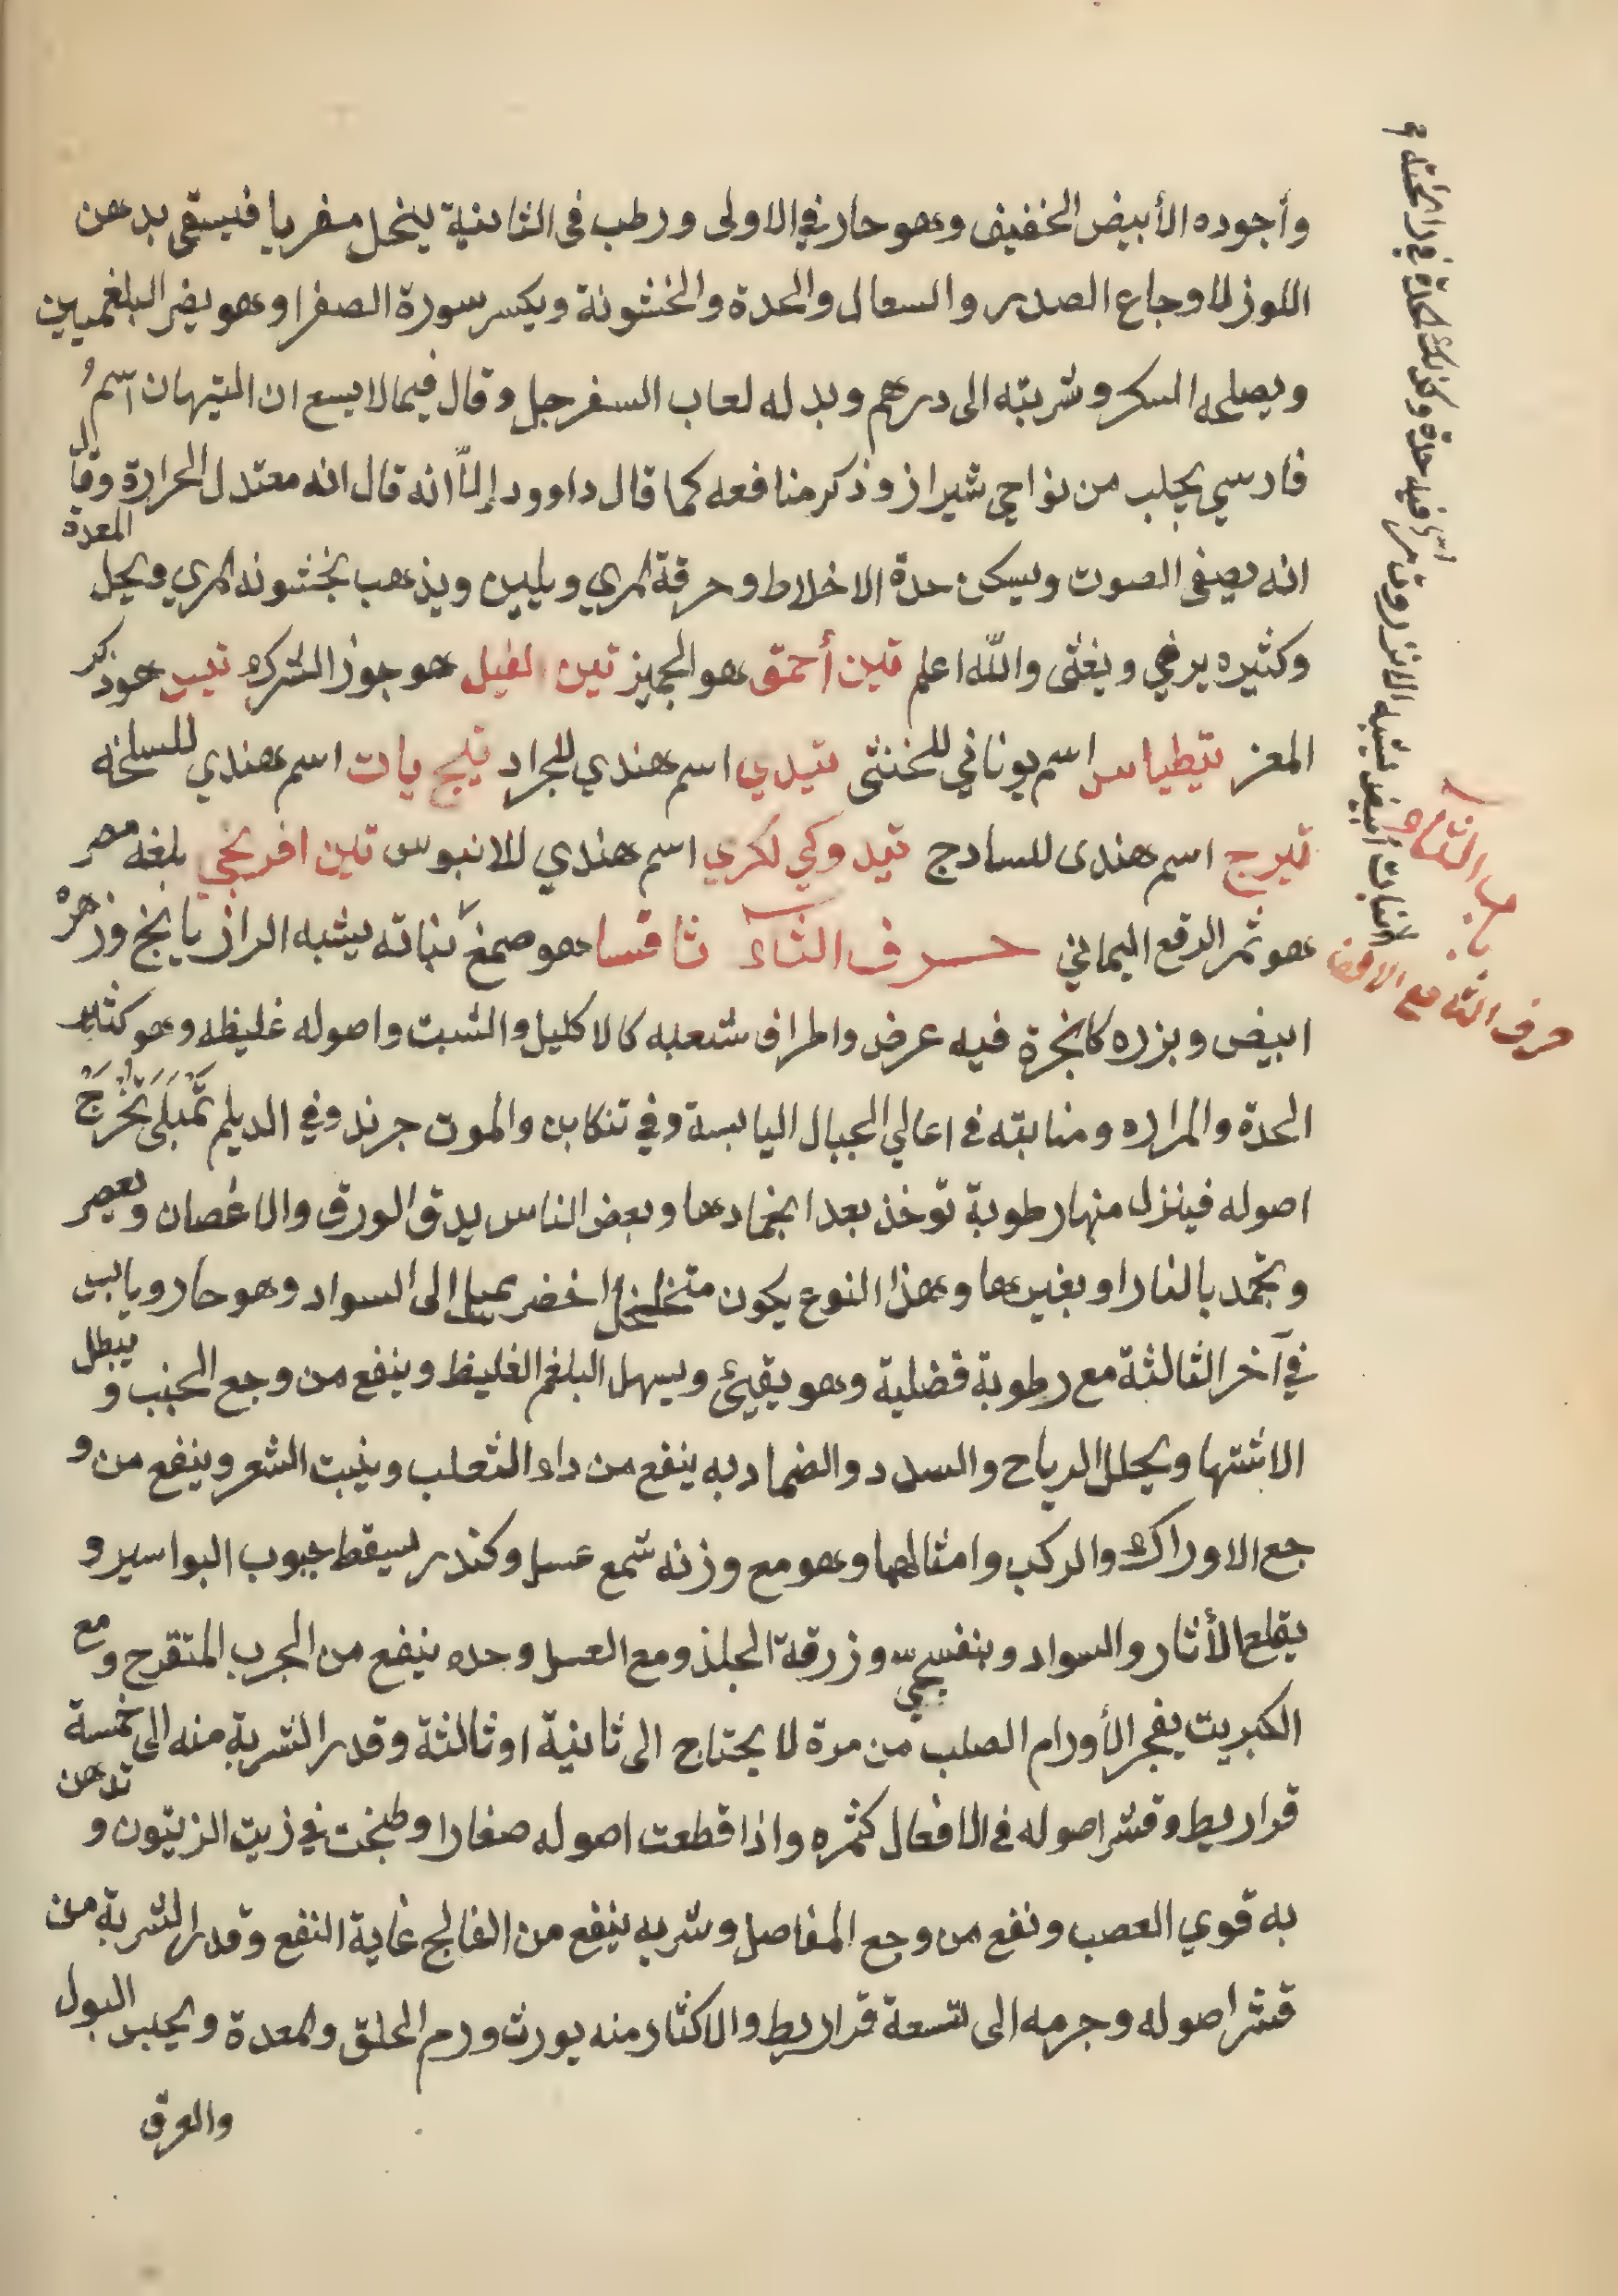 وأجوده الأبيض الخفيف وهو حار في الاولى ورطب في الثانية ينحل مفربا فيسقى بدهن
اللوز لاوجاع الصدر والسعال والحدة والخشونة ويكسر سورة الصفرا وهو يضر البلغميين
ويصلحه السكر وشربته الى درهم وبدله لعاب السفرجل وقال فيما لا يسع ان التيهان اسم
فارسي يجلب من نواحي شيراز وذكر منافعه كما قال داوود إلّا انه قال انه معتدل الحرارة وقال
انه يصفى الصوت ويسكن حدة الاخلاط وحرقة المري ويلين ويذهب بخشونه المري ويحل المعدة
وكثيره يرخي ويغثى والله اعلم تين أحمق هو الجميز تين الفيل هو جوز الشرك تيس هو ذكر
المعز تيطياس اسم يوناني للخنثى تيدي اسم هندي للجراد تيج يات اسم هندي للسلخه
تيرج اسم هندى للسادج تيدوكي لكري اسم هندي للانبوس تين افرنجي بلغه مصر
هو ثمر الرقع اليماني حرف الثآء ثاقسا هو صمغ نباته يشبه الرازيانج وزهره
ابيض وبزره كانجرة فيه عرض واطراف شعبه كالاكليل والشبت واصوله غليظه وهو كثير
الحدة والمراره ومنابته في اعالي الجبال اليابسة وفي تنكابن والموت جرند وفي الديلم تمبلى تخرج
اصوله فينزل منها رطوبة توخذ بعد انجمادها وبعض الناس يدق الورق والاغصان ويعصر
وتجمد بالنار او بغيرها وهذا النوع يكون متخلخل اخضر يميل الى السواد وهو حار ويابس
في آخر الثالثة مع رطوبة فضلية وهو يقيئ ويسهل البلغم الغليظ وينفع من وجع الجنب ويبطل
الاشتها ويحلل الرياح والسدد والضماد به ينفع من داء الثعلب وينبت الشعر وينفع من و
جع الاوراك والركب وامثالها وهو مع وزنه شمع عسل وكندر يسقط حبوب البواسير و
يقلع الأثار والسواد وبنفسجي وزرقة الجلد ومع العسل وحده ينفع من الجرب المتقرح ومع
الكبريت يفجر الأورام الصلب من مرة لا يحتاج الى ثانية او ثالثة وقدر الشربة منه الى خمسة
قراريط وقشر اصوله في الافعال كثمره واذا قطعت اصوله صغارا وطبخت في زيت الزيتون وتدهن
به قوي العصب ونفع من وجع المفاصل وشربه ينفع من الفالج غاية النفع وقدر الشربة من
قشر اصوله وجرمه الى تسعة قراريط والاكثار منه يورث ورم الحلق والمعدة ويحبس البول
والعرق
باب الثاء
حرف الثا مع الالف
لانبات أبيض يشبه الانزروت